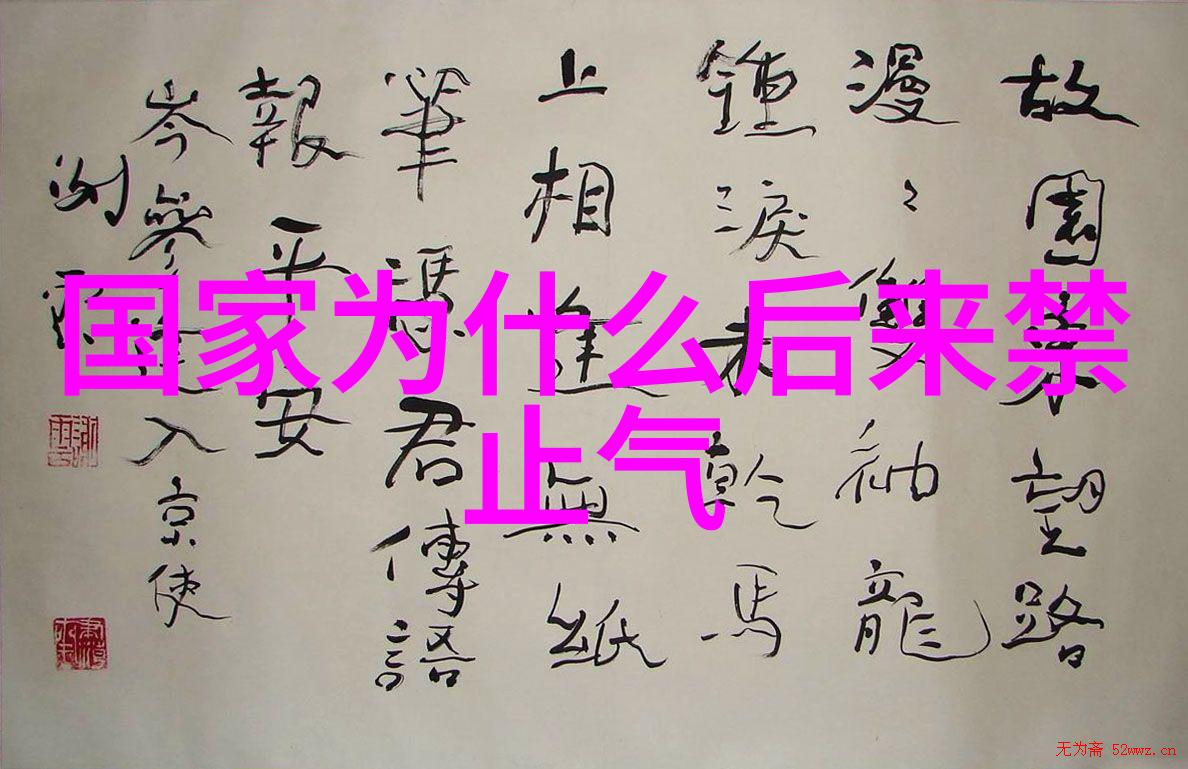 国家为什么后来禁
止气
故園東望路
漫〻雙袖龍
鍾淚未乾馬
上相逢無紙
筆憑君傳語
報平安
岑參逢入京使
无为斋 52wwz.cn